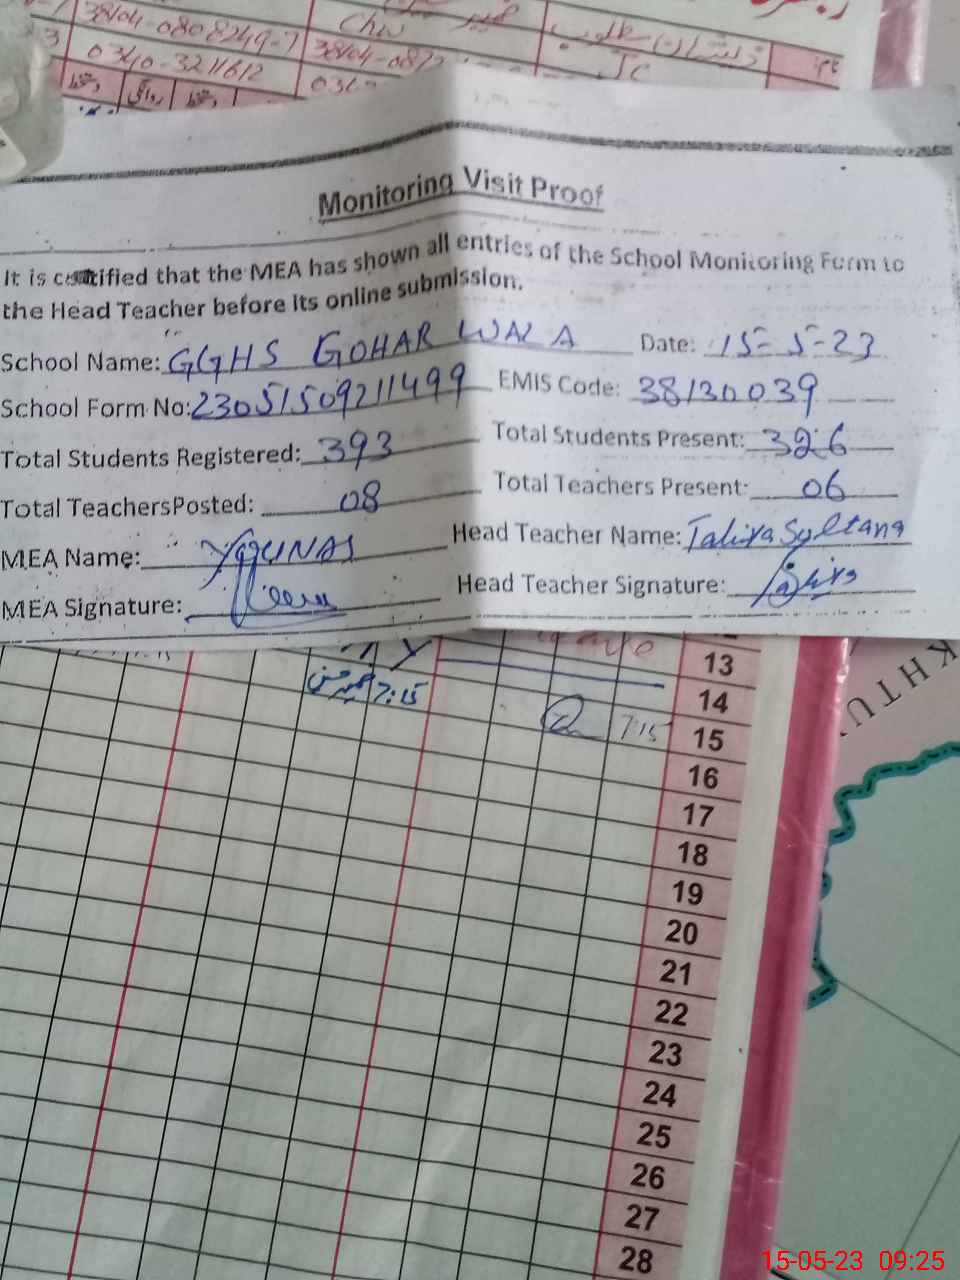 38404-0808249-7
0340-3211612 38404-087
0340
Monitoring Visit Proof
It is certified that the MEA has shown all entries of the School Monitoring Form to
the Head Teacher before its online submission.
School Name: GGHS GOHAR WALA Date: 15-5-23
School Form No: 23051509211499 EMIS Code: 38130039
Total Students Registered: 393 Total Students Present: 326
Total TeachersPosted: 08 Total Teachers Present: 06
MEA Name: YOUNAS Head Teacher Name: Tahira Sultana
MEA Signature: Head Teacher Signature: Tahira
13
7:15 14
7:15 15
16
17
18
19
20
21
22
23
24
25
26
27
28
KHTU
15-05-23 09:25